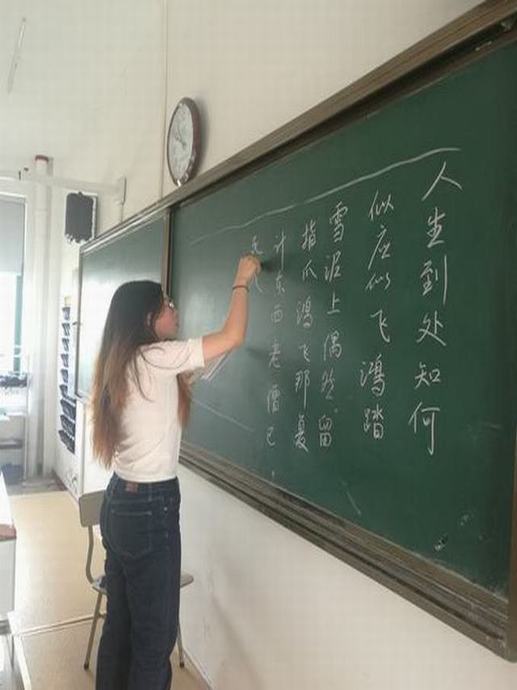 人生到处知何
似应似飞鸿踏
雪泥上偶然留
指爪鸿飞那复
计东西老僧已
死